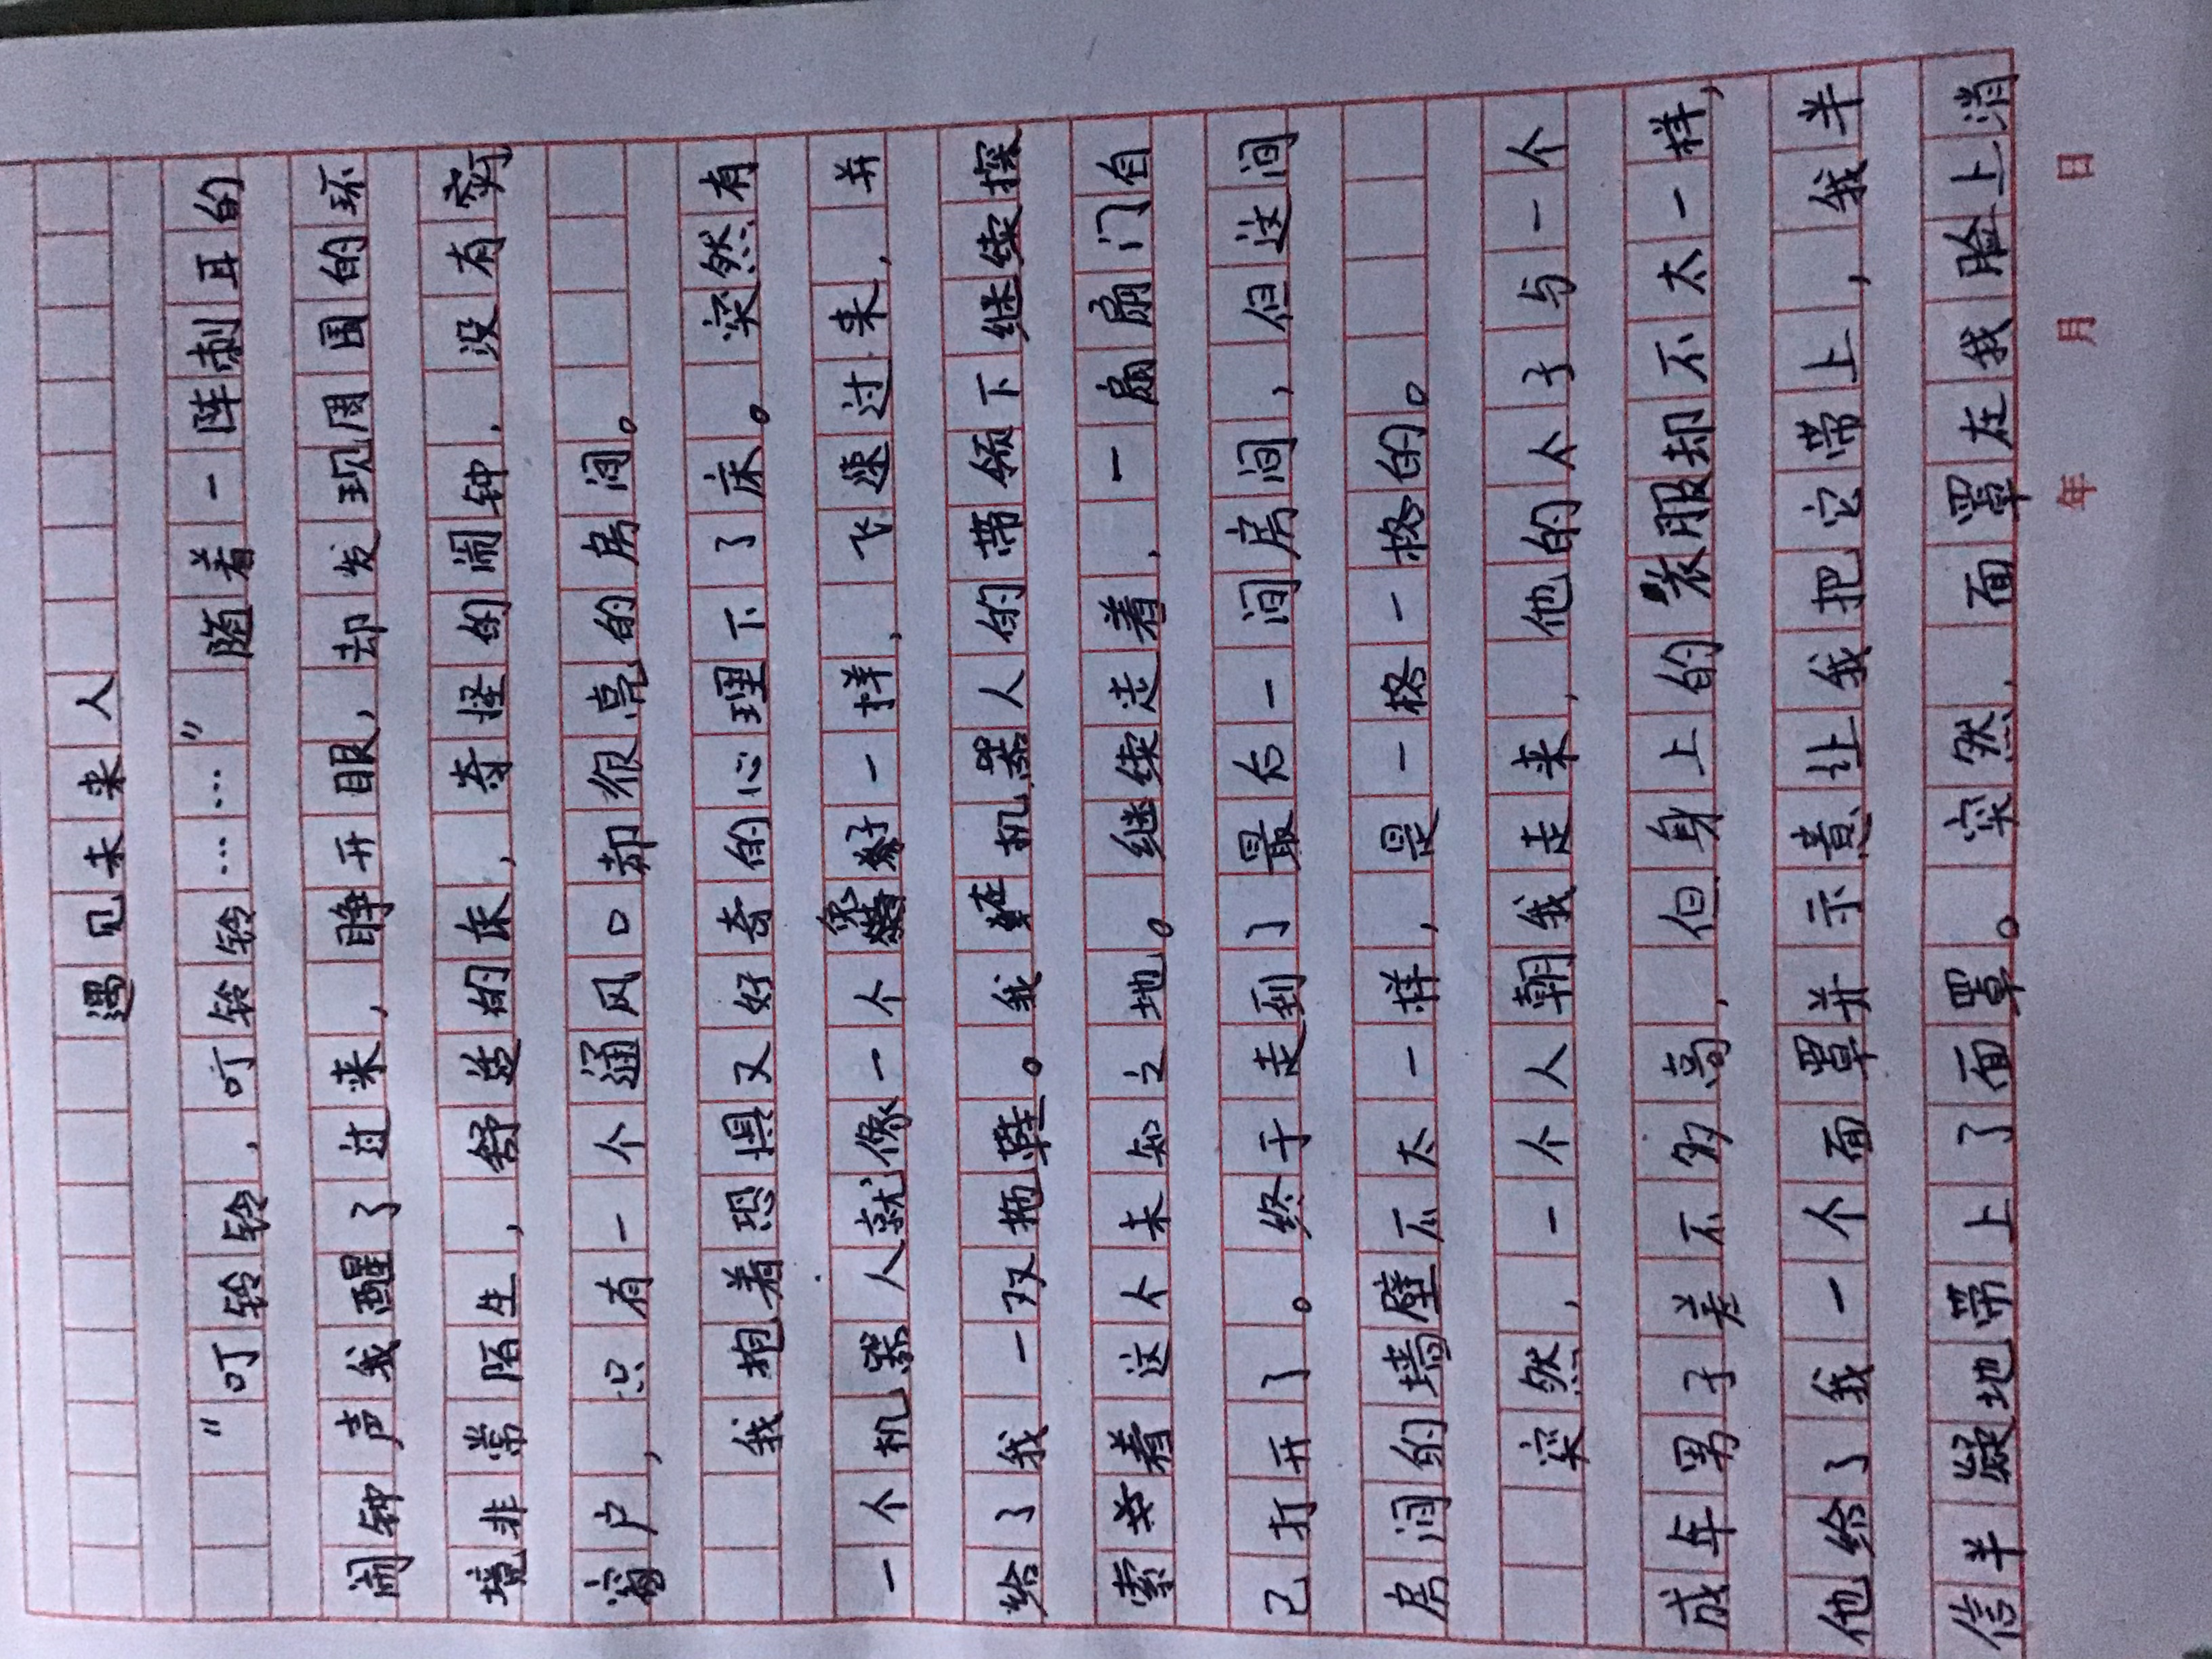 遇见未来人
“叮铃铃，叮铃铃……”随着一阵刺耳的
闹钟声我醒了过来，睁开眼，却发现周围的环
境非常陌生，舒适的床，奇怪的闹钟，没有窗
窗户，只有一个通风口却很亮的房间。
我抱着恐惧又好奇的心理下了床。突然有
一个机器人就像一个一样，飞速过来，并
给了我一双拖鞋。我在机器人的带领下继续探
索着这个未知之地。继续走着，一扇扇门自
己打开了。终于走到了最后一间房间，但这间
房间的墙壁不太一样，是一格一格的。
突然，一个人朝我走来，他的个子与一个
成年男子差不多高，但身上的衣服却不太一样，
他给了我一个面罩并示意让我把它带上，我半
信半疑地带上了面罩。突然，面罩在我脸上消
年 月 日